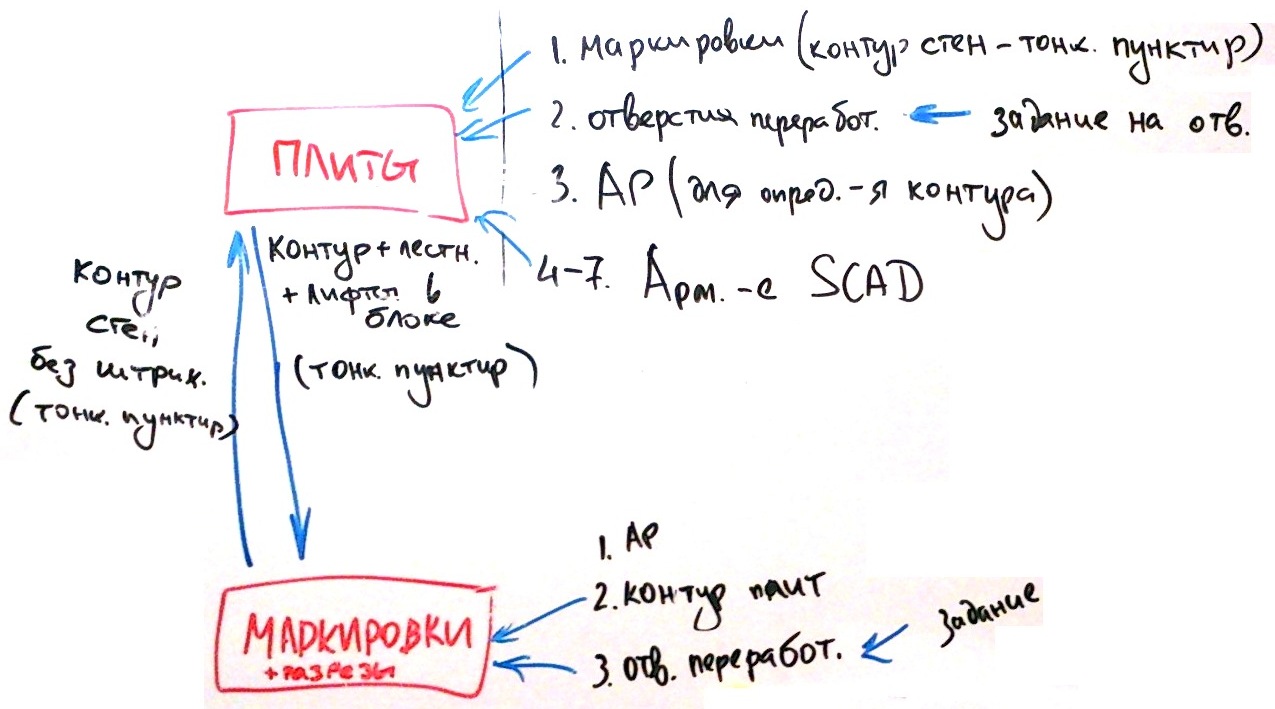 1. Маркировки (контур стен - тонк. пунктир)
2. отверстия переработ. задание на отв.
ПЛИТЫ
3. АР (для опред.-я контура)
4-7. Арм.-е SCAD
контур + лестн.
+ лифты в
блоке
(тонк. пунктир)
контур
стен
без штрих.
(тонк. пунктир)
1. АР
2. контур плит
3. отв. переработ. задание
МАРКИРОВКИ
+ разрезы